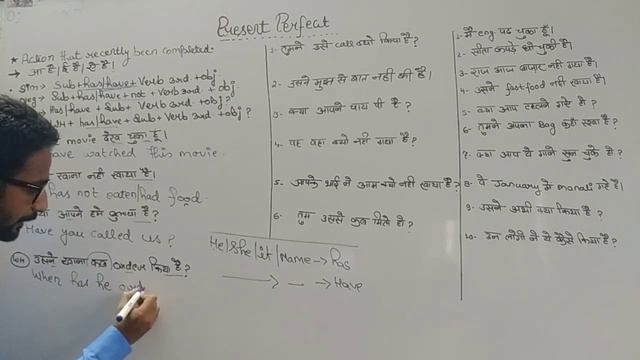 Present Perfect
* Action that recently been completed.
→ आ है। ई है। ए है।
stm → Sub+has/have+Verb 3rd+obj
Neg → Sub+has/have+not+Verb 3rd+obj
Has/have+Sub+Verb 3rd+obj?
WH+has/have+Sub+Verb 3rd+obj?
movie देख चुका हूँ।
have watched this movie.
खाना नहीं खाया है।
has not eaten/had food.
आपने हमे बुलाया है?
Have you called us?
WH उसने खाना कब order किया है?
When has he ord
1- तुमने उसे call क्यो किया है?
2. उसने मुझ से बात नहीं की है।
3. क्या आपने चाय पी है?
4. वह वहा क्यो नहीं गया है?
5. आपके भाई ने आम क्यो नहीं खाया है?
6- तुम उससे कब मिले हो?
He/She/it/Name → has
→ Have
1. मैं eng पढ़ चुका हूँ।
2. सीता कपड़े धो चुकी है।
3. राज आज बाजार नहीं गया है।
4. उसने fastfood नहीं खाया है।
5. क्या आप टहलने गए हो?
6. तुमने अपना Bag कहाँ रखा है?
7. क्या आप ये गाने सुन चुके हो?
8. वे January में manali गए है।
9. उसने अभी क्या किया है?
10. इन लोगो ने ये कैसे किया है?